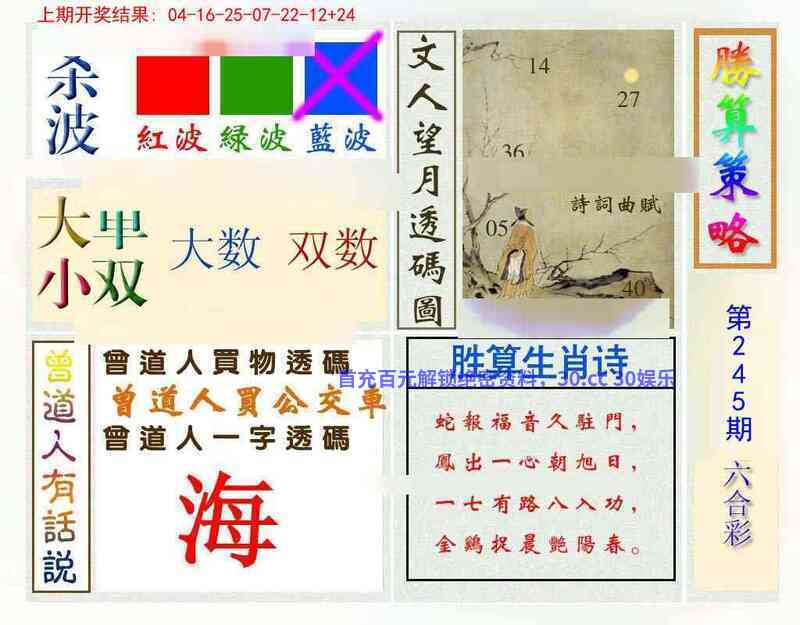 上期开奖结果：04-16-25-07-22-12+24
杀波
紅波 緑波 藍波
大小
单双
大数 双数
文人望月透碼圖
14
27
36
詩詞曲賦
05
40
勝算策略
第245期
六合彩
曾道人有話説
曾道人買物透碼
曾道人買公交車
曾道人一字透碼
海
胜算生肖诗
首充百元解锁绝密资料，30.cc 30娱乐
蛇報福音久駐門，
鳳出一心朝旭日，
一七有路八入功，
金鷄捉晨艷陽春。